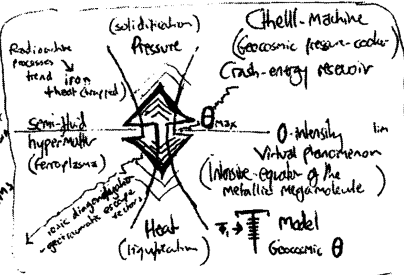 (solidification)
Pressure
Cthelll-Machine
(Geocosmic pressure-cooker)
Crash-energy reservoir
Radioactive
processes
trend
iron
+heat (trapped)
Θ Max
Semi-fluid
hypermatter
(ferroplasma)
0-Intensity lim
Virtual Plane
(Intensive-equator of the
metallic megamolecule)
ionic disorganization
-geotraumatic escape
vectors
Heat
(liquification)
Model
Geocosmic Θ